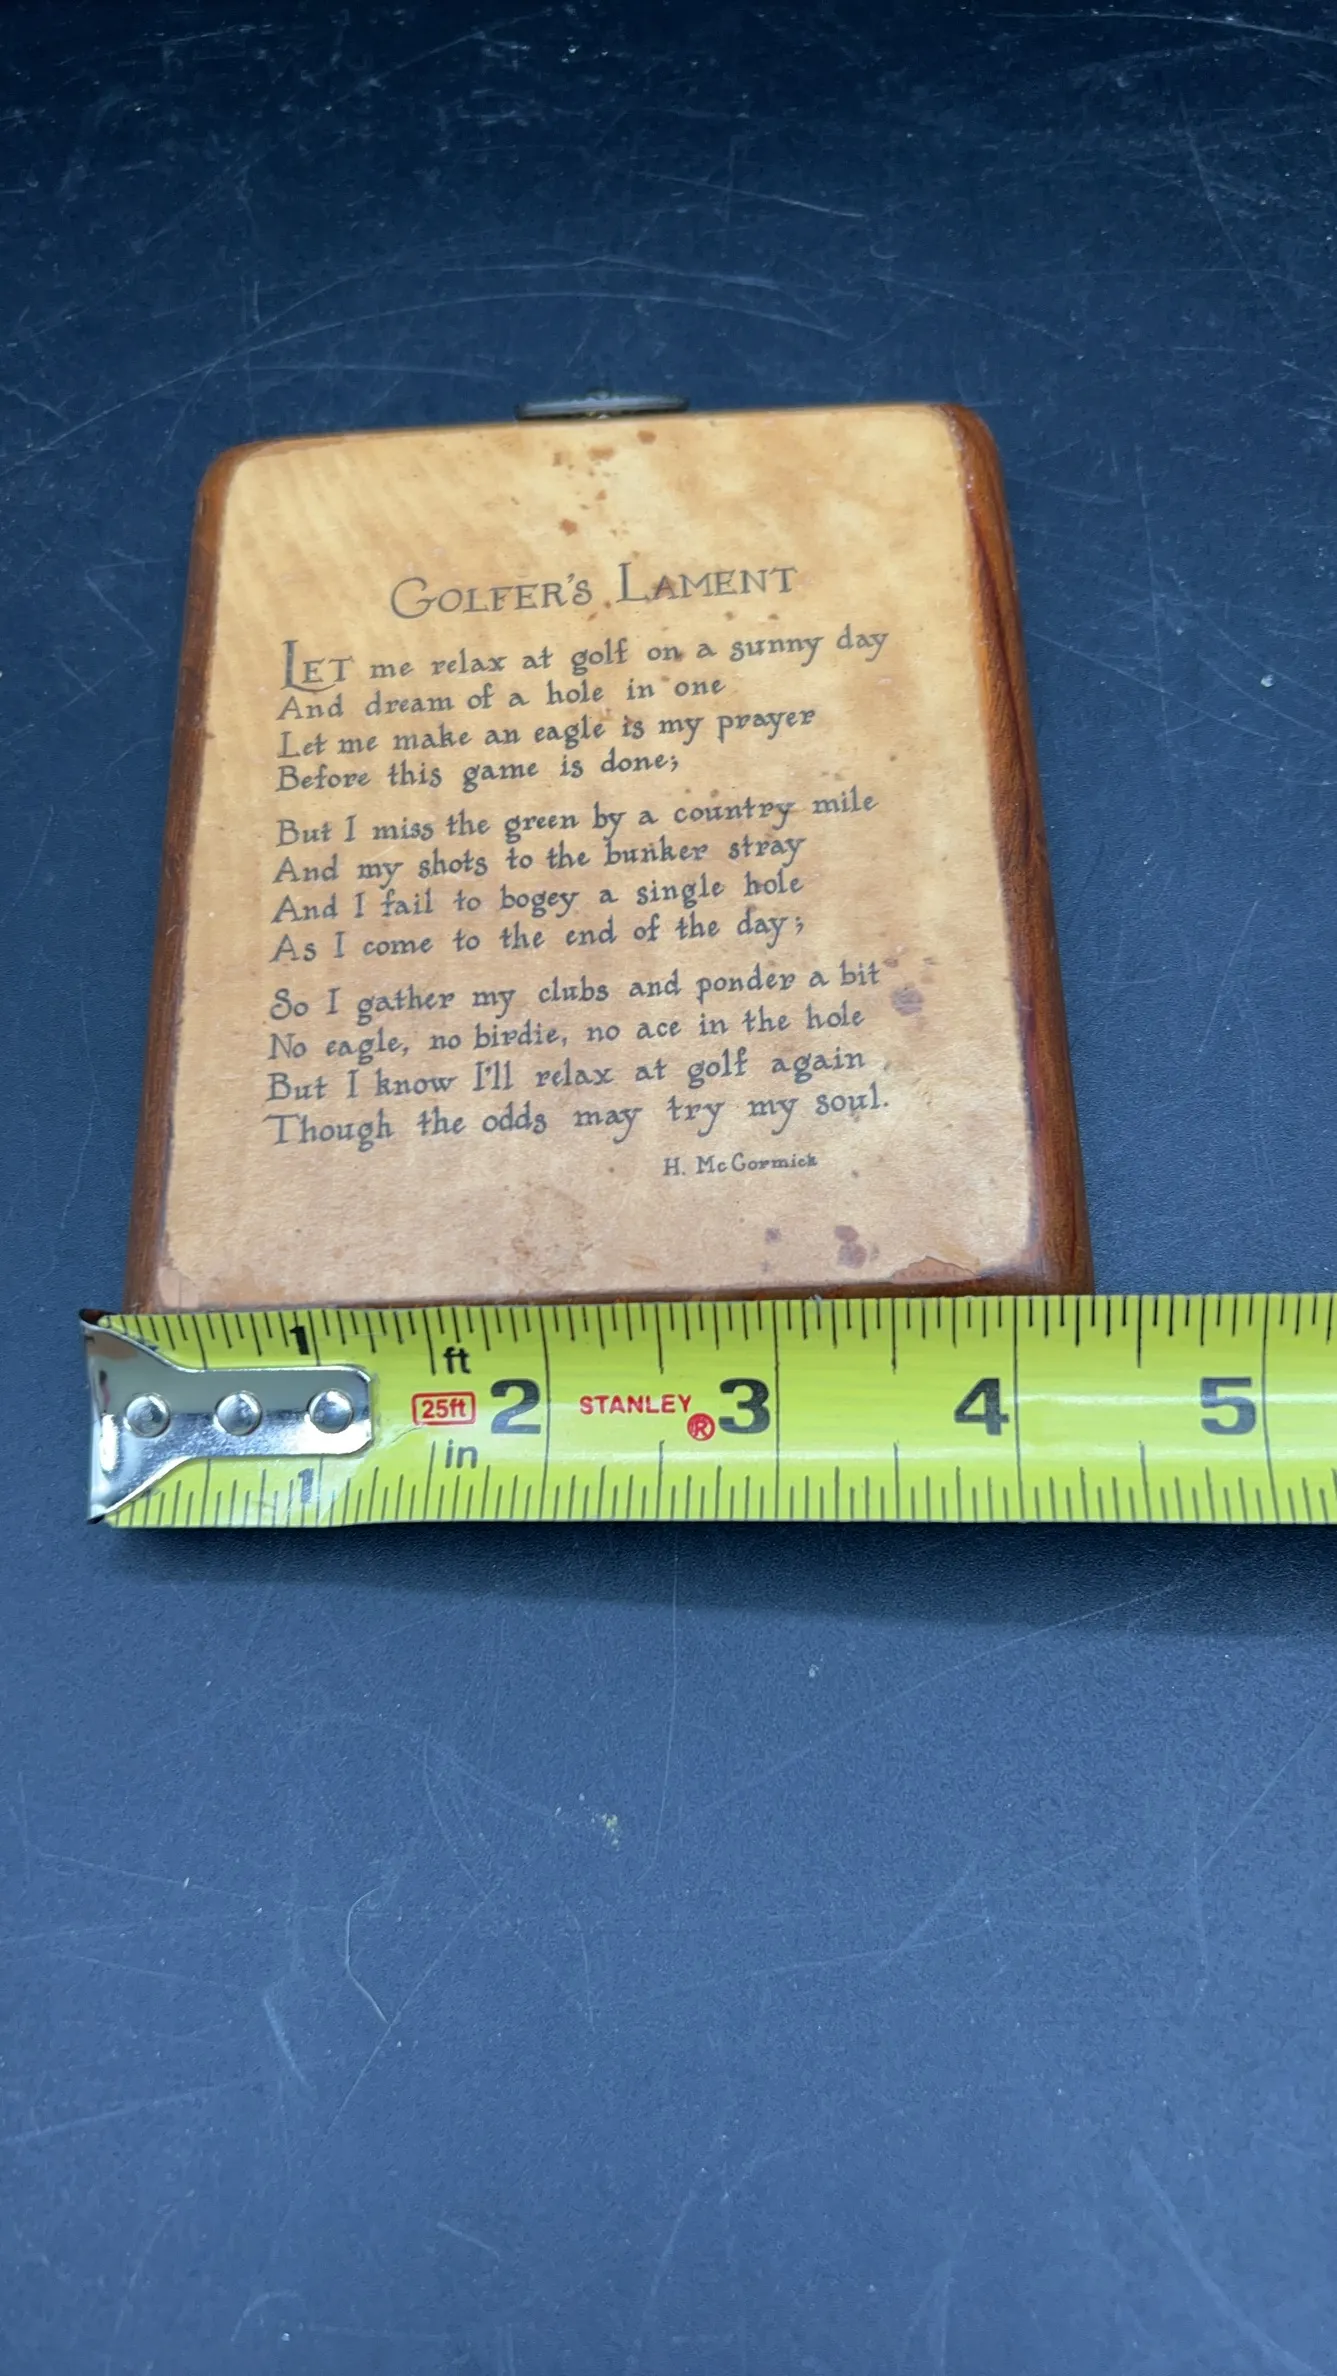 GOLFER'S LAMENT
LET me relax at golf on a sunny day
And dream of a hole in one
Let me make an eagle is my prayer
Before this game is done;
But I miss the green by a country mile
And my shots to the bunker stray
And I fail to bogey a single hole
As I come to the end of the day;
So I gather my clubs and ponder a bit
No eagle, no birdie, no ace in the hole
But I know I'll relax at golf again
Though the odds may try my soul.
H. McCormick
1 ft
25ft 2 STANLEY ® 3 4 5
in
1